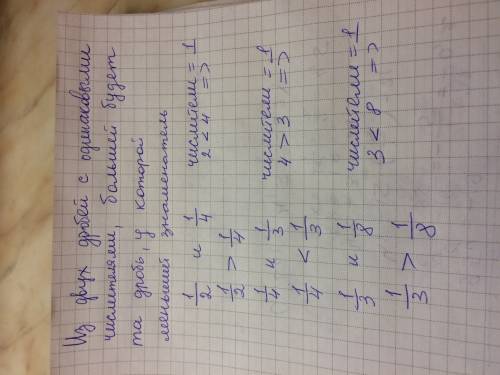 Из двух дробей с одинаковыми
числителями, большей будет
та дробь, у которой
меньший знаменатель
1/2 и 1/4 числители = 1
1/2 > 1/4 2 < 4 =>
1/4 и 1/3 числители = 1
1/4 < 1/3 4 > 3 =>
1/3 и 1/8 числители = 1
1/3 > 1/8 3 < 8 =>